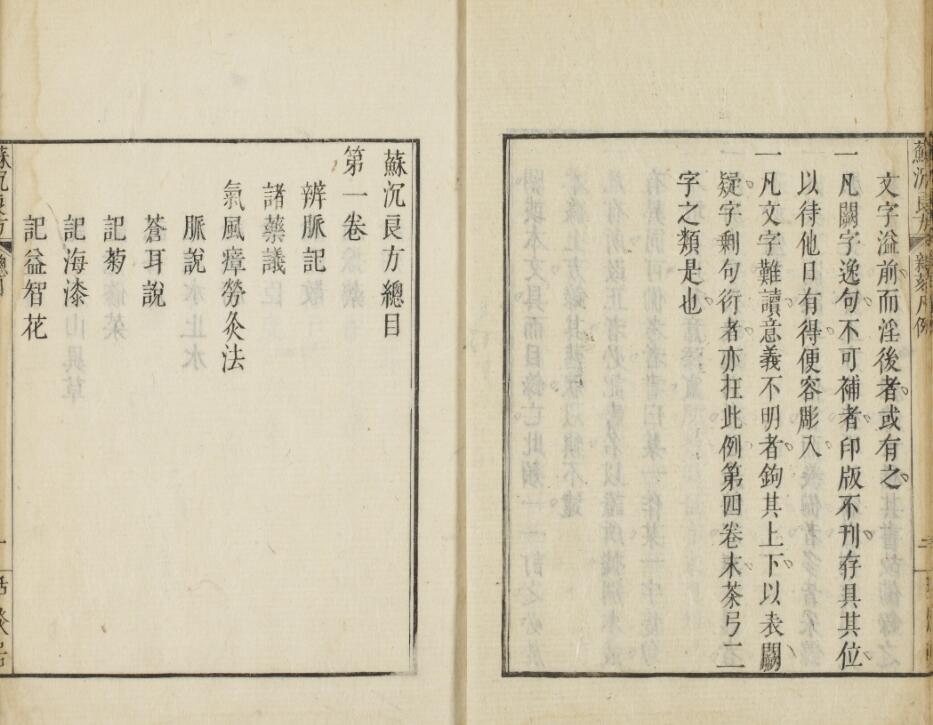 文字溢前而淫後者或有之
一凡闕字逸句不可補者印版不刊存具其位
以待他日有得便容彫入
一凡文字難讀意義不明者鉤其上下以表闕
疑字剩句衍者亦在此例第四卷末茶弓二
字之類是也
蘇沉良方總目
第一卷
辨脈記
諸藥議
氣風瘴勞灸法
脈說
蒼耳說
記菊
記海漆
記益智花